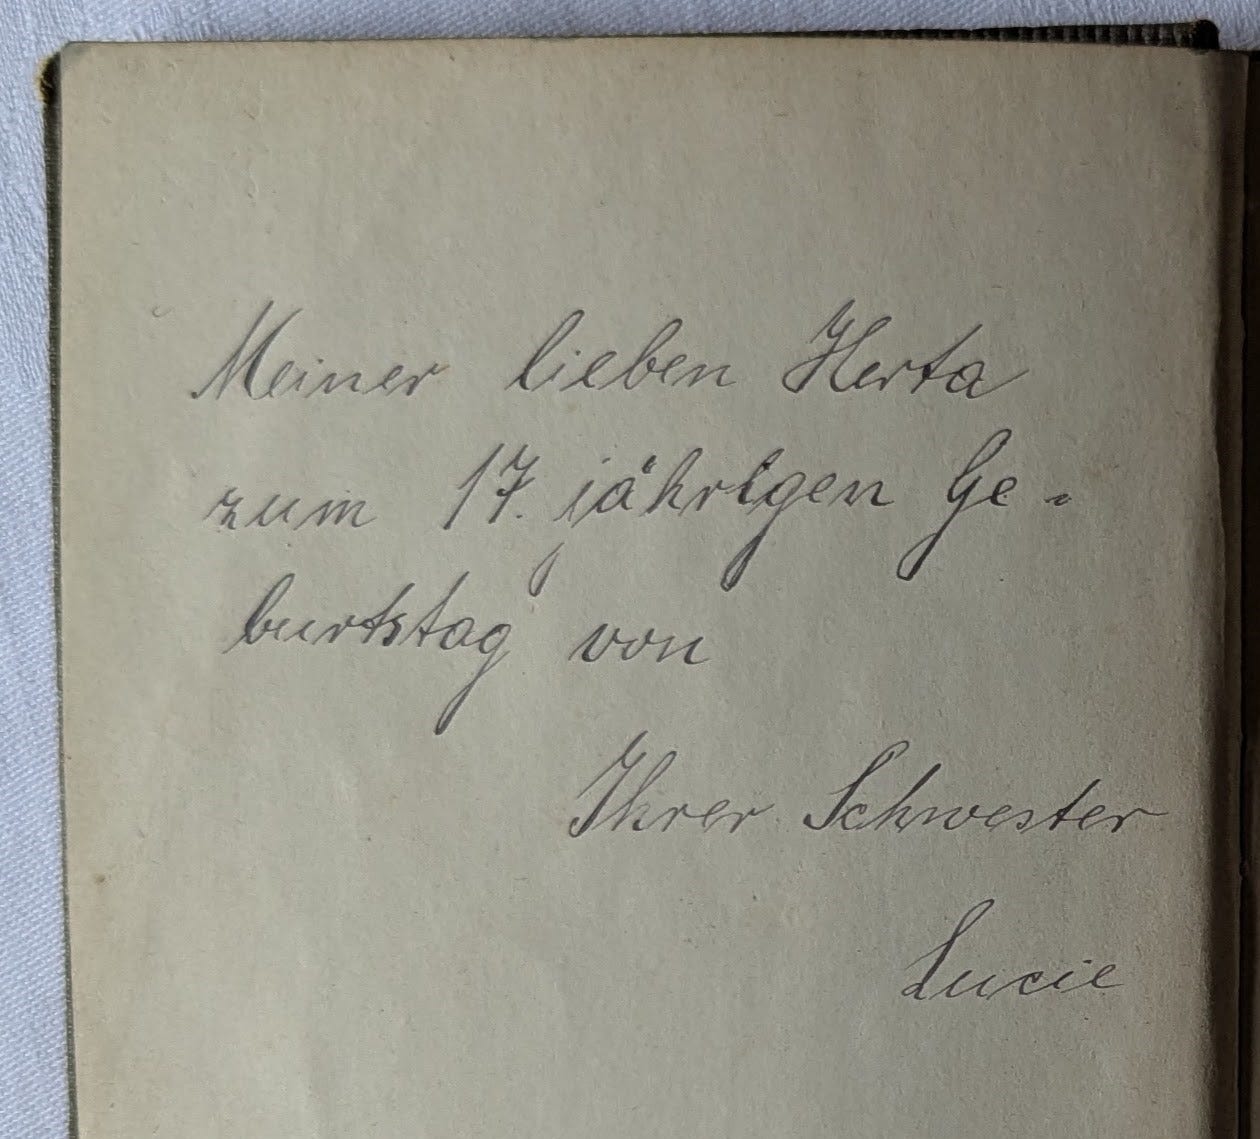 Meiner lieben Herta
zum 17. jährigen Ge-
burtstag von
Ihrer Schwester
Lucie